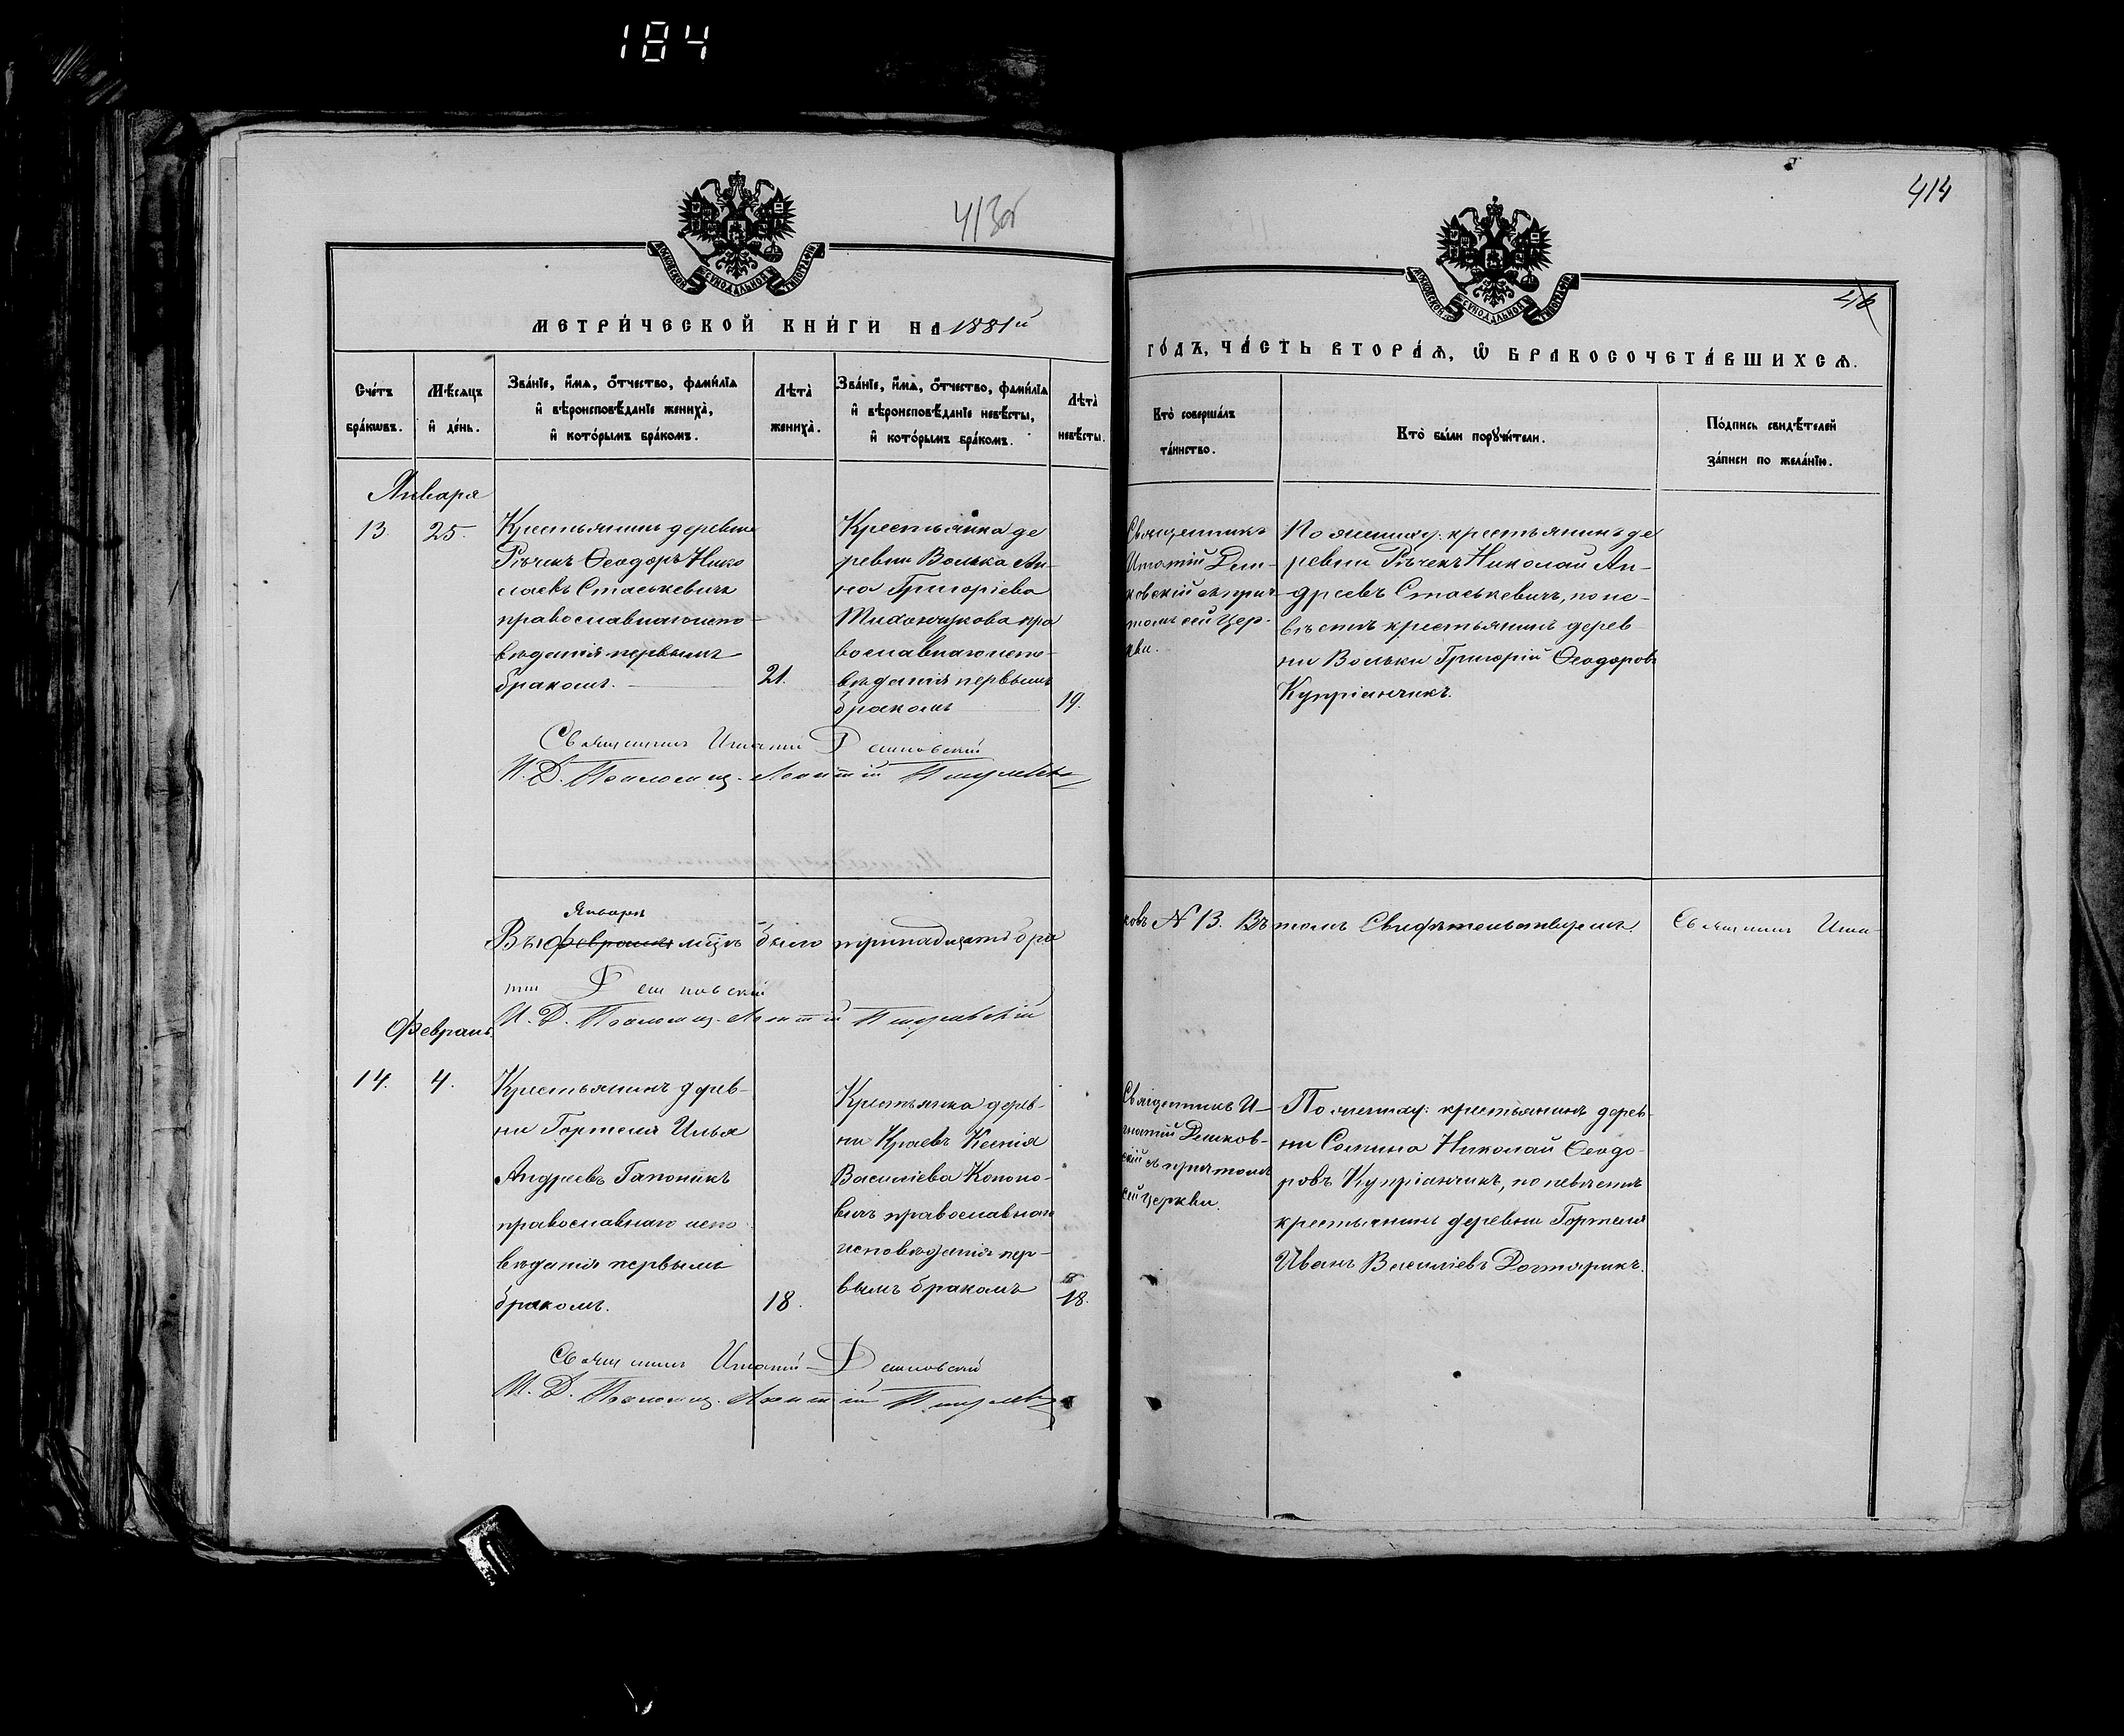 184
413об
414
МОСКОВСКОЙ СѴНОДАЛЬНОЙ ТИПОГРАФІИ
МОСКОВСКОЙ СѴНОДАЛЬНОЙ ТИПОГРАФІИ
МЕТРИ́ЧЕСКОЙ КНИ́ГИ НА 1881й
ГО́ДЪ, ЧА́СТЬ ВТОРА́Ѧ, Ѡ҆ БРАКОСОЧЕТА́ВШИХСѦ.
Сче́тъ
бра́кѡвъ.
Мѣ́сѧцъ
и҆ де́нь.
Зва́нїе, и҆́мѧ, о҆́тчество, фами́лїѧ
и҆ вѣроисповѣ́данїе жениха̀,
и҆ кото́рымъ бра́комъ.
Лѣта̀
жениха̀.
Зва́нїе, и҆́мѧ, о҆́тчество, фами́лїѧ
и҆ вѣроисповѣ́данїе невѣ́сты,
и҆ кото́рымъ бра́комъ.
Лѣта̀
невѣ́сты.
Кто̀ соверша́лъ
та́инство.
Кто̀ бы́ли порꙋчи́тели.
По́дпись свидѣ́телей
за́писи по жела́нїю.
Января
13.
25.
Крестьянинъ деревни
Рѣчекъ Ѳеодоръ Нико
лаевъ Стаськевичъ
православнаго испо
вѣданія первымъ
бракомъ.
21.
Крестьянка де
ревни Волька Ан-
на Григоріева
Тихончукова пра
вославнаго испо-
вѣданія первымъ
бракомъ
19.
Священникъ
Игнатій Деш-
ковскій съ прич-
томъ сей Цер-
кви.
По женихѣ: крестьянинъ де
ревни Рѣчекъ Николай Ан-
дреевъ Стаськевичъ, по не-
вѣстѣ крестьянинъ дерев
ни Вольки Григорій Ѳеодоровъ
Купріанчикъ.
Священникъ Игнатій Дешковскій
И. Д. Псаломщ. Леонтій
Января
Въ Февралѣ мцѣ было тринадцать бра
ковъ N 13. Въ томъ Свидѣтельствуемъ. Священникъ Игна-
тій Дешковскій
И. Д. Псаломщ. Леонтій
Февраль
14.
4.
Крестьянинъ дерев-
ни Гортеля Илья
Андреевъ Гапоникъ
православнаго испо
вѣданія первымъ
бракомъ.
18.
Крестьянка дерев-
ни Краевъ Ксенія
Василіева Кононо-
вичъ православнаго
исповѣданія пер-
вымъ бракомъ
18.
Священникъ И-
гнатій Дешков-
скій съ причтомъ
сей церкви.
По женихѣ: крестьянинъ дерев-
ни Сомина Николай Ѳеодо-
ровъ Купріанчикъ, по невѣстѣ
крестьянинъ деревни Гортеля
Иванъ Василіевъ Дегтярикъ.
Священникъ Игнатій Дешковскій
И. Д. Псаломщ. Леонтій